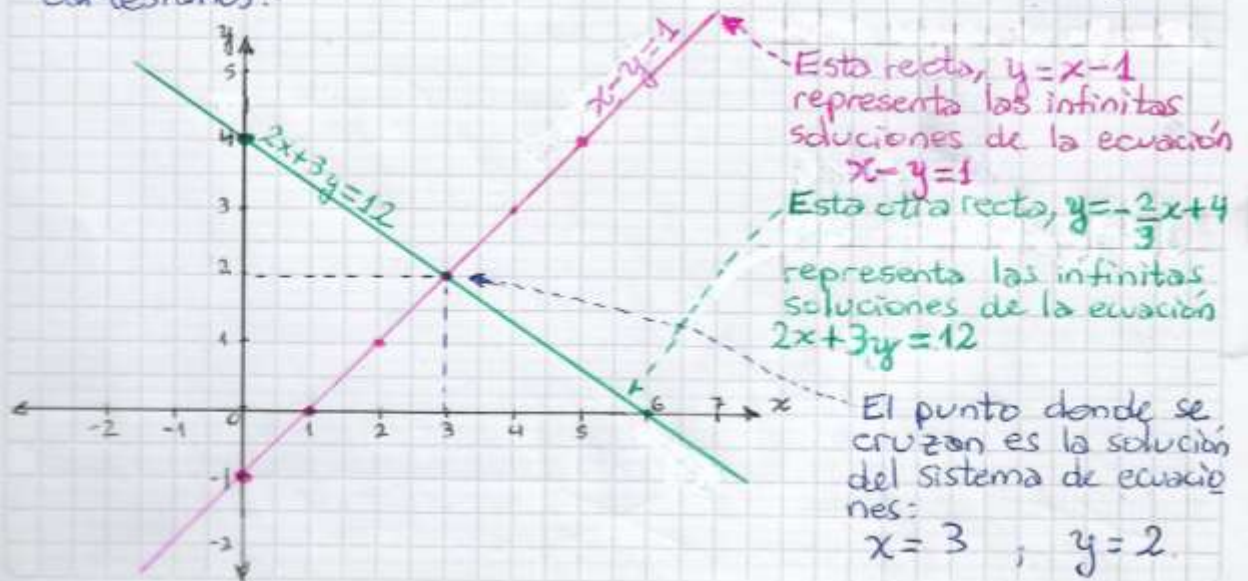 cartesianos:
y
5
4
3
2
1
0
-1
-2
-2 -1 1 2 3 4 5 6 7 x
2x+3y=12
x-y=1
Esta recta, y=x-1
representa las infinitas
soluciones de la ecuación
x-y=1
Esta otra recta, y=-2/3x+4
representa las infinitas
soluciones de la ecuación
2x+3y=12
El punto donde se
cruzan es la solución
del sistema de ecuacio
nes:
x=3 ; y=2.